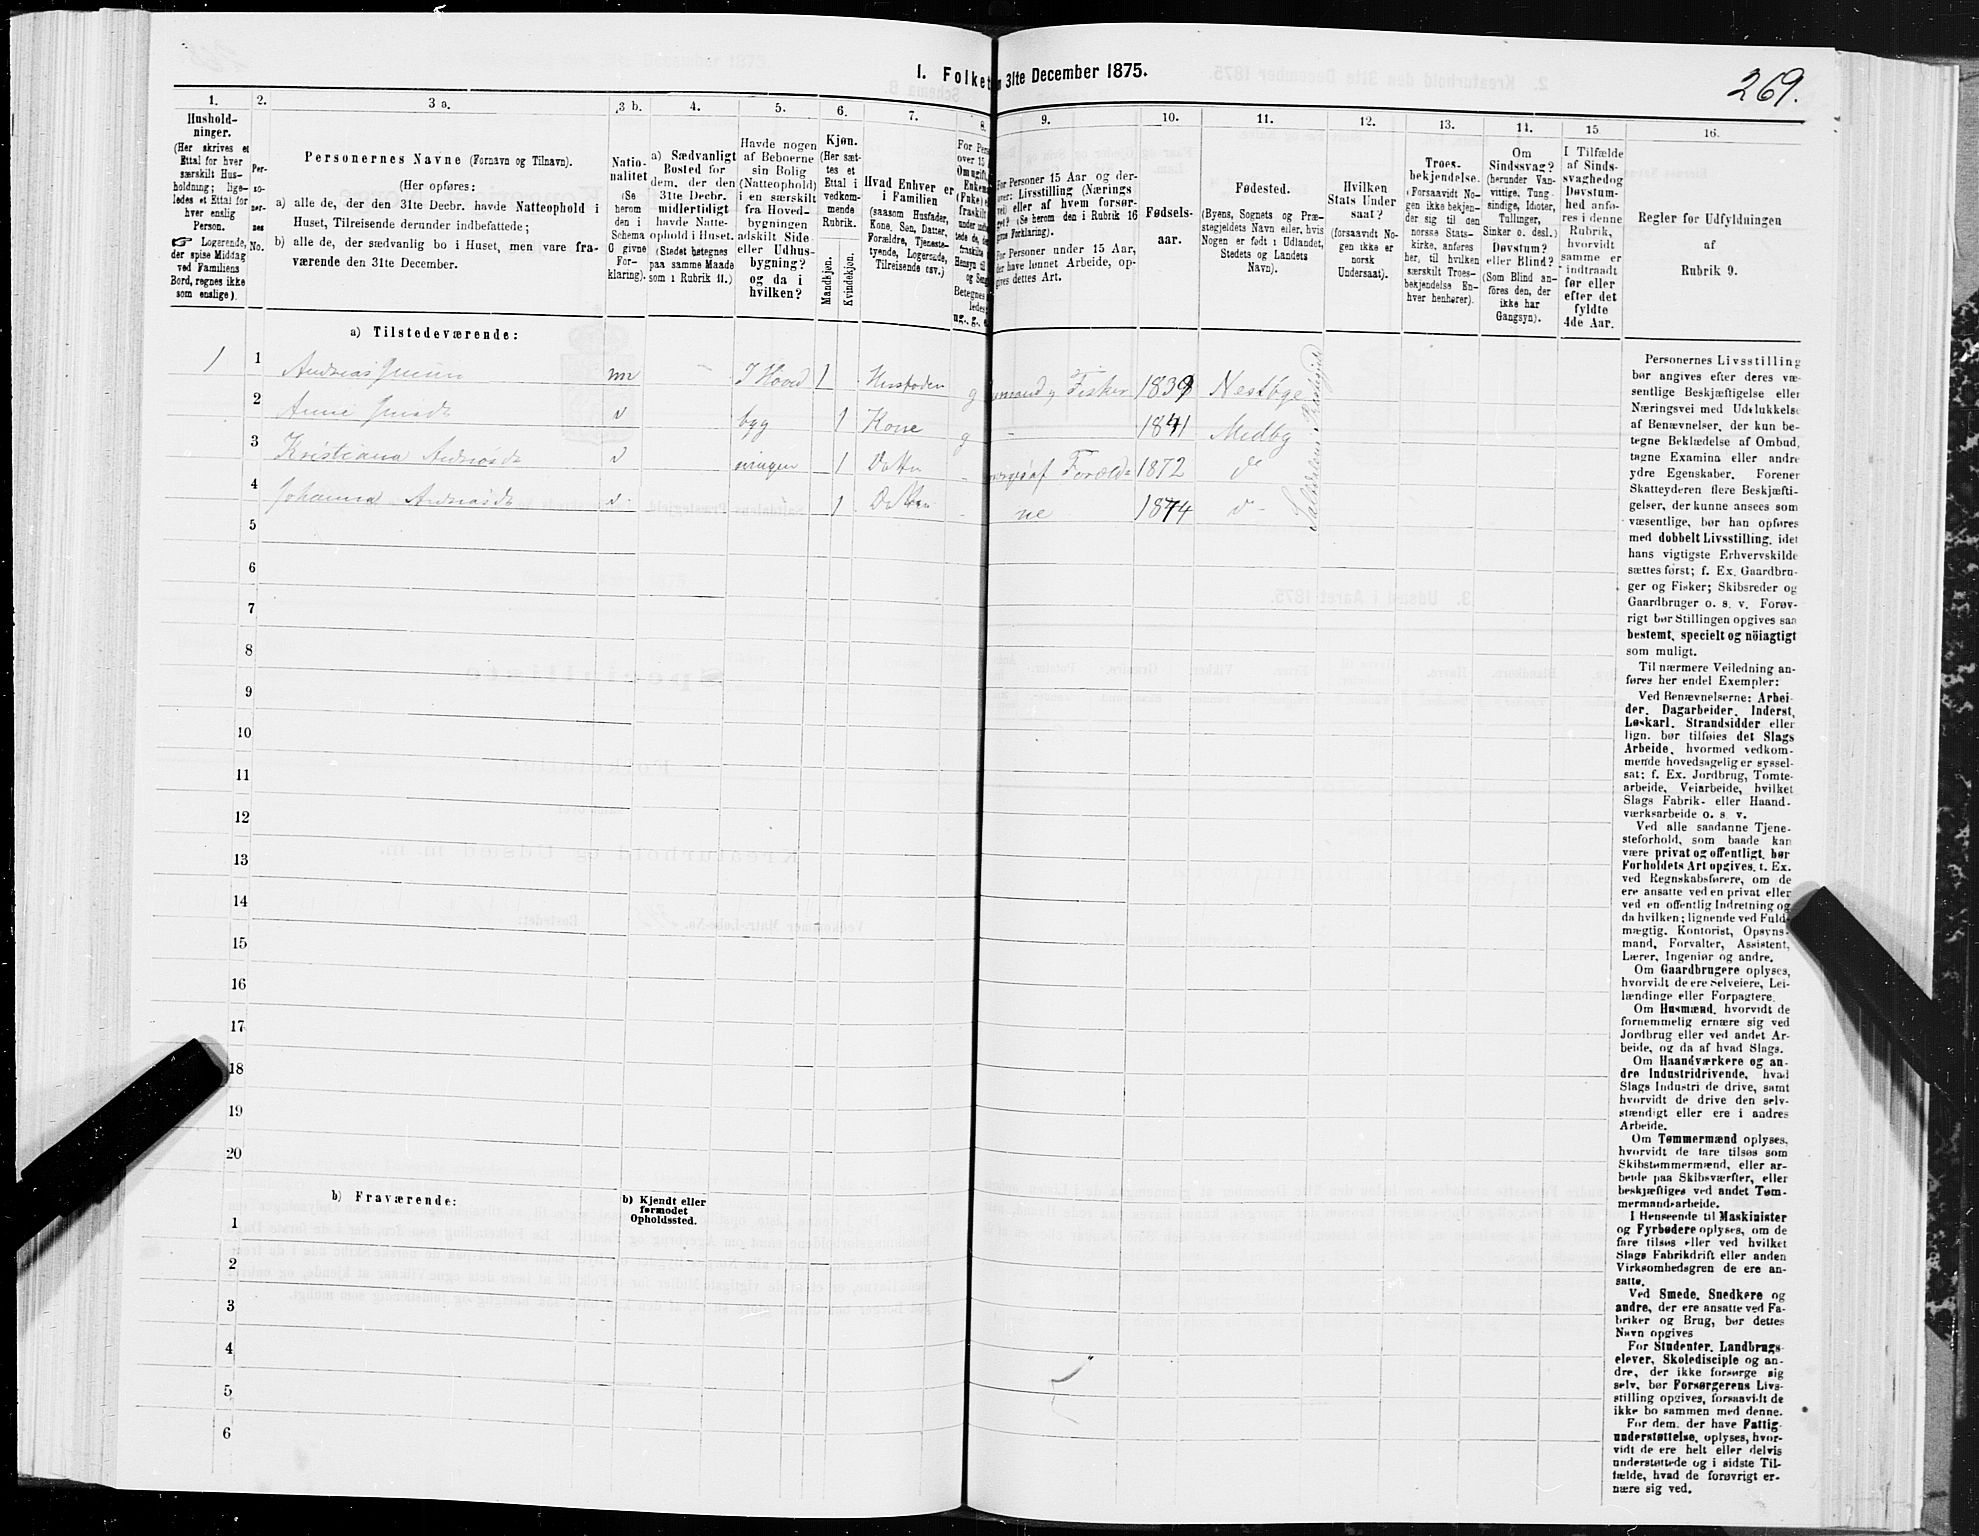 1. Folket
n 31te December 1875.
269.
1.
2.
3 a.
3 b.
4.
5.
6.
7.
8.
9.
10.
11.
12.
13.
14.
15
16.
Hushold-
ninger.
(Her skrives et
Ettal for hver
særskilt Hus-
holdning; lige-
ledes et Ettal for
hver enslig
Person.
☞ Logerende,
der spise Middag
ved Familiens
Bord, regnes ikke
som enslige).
Per-
so-
ner-
nes
No.
Personernes Navne (Fornavn og Tilnavn).
(Her opføres:
a) alle de, der den 31te Decbr. havde Natteophold i
Huset, Tilreisende derunder indbefattede;
b) alle de, der sædvanlig bo i Huset, men vare fra-
værende den 31te December.
Natio-
nalitet
(Se
herom
den i
Schema
O givne
For-
klaring).
a) Sædvanligt
Bosted for
dem, der den
31te Decbr.
midlertidigt
havde Natte-
ophold i Huset.
(Stedet betegnes
paa samme Maade
som i Rubrik 11.)
Havde nogen
af Beboerne
sin Bolig
(Natteophold)
i en særskilt
fra Hoved-
bygningen
adskilt Side-
eller Udhus-
bygning?
og da i
hvilken?
Kjøn.
(Her sæt-
tes et
Ettal i
vedkom-
mende
Rubrik.
Mandkjøn.
Kvindekjøn.
Hvad Enhver er
i Familien
(saasom Husfader,
Kone, Søn, Datter,
Forældre, Tjeneste-
tyende, Logerende,
Tilreisende osv.)
For Pers
over 15
Om ugift,
Enkem
(Enke) e
fraskilt
Hensyn til
og Seng
Betegnes
ledes:
ug., g., e
For Personer 15 Aar og der-
over: Livsstilling (Nærings
vei) eller af hvem forsør-
get? (Se herom den i Rubrik 16
givne Forklaring).
For Personer under 15 Aar,
der have lønnet Arbeide, op-
gives dettes Art.
Fødsels-
aar.
Fødested.
(Byens, Sognets og Præ-
stegjeldets Navn eller, hvis
Nogen er født i Udlandet,
Stedets og Landets
Navn).
Hvilken
Stats Under
saat?
(forsaavidt No-
gen ikke er
norsk
Undersaat).
Troes-
bekjendelse.
(Forsaavidt No-
gen ikke bekjen-
der sig til den
norske Stats-
kirke, anføres
her, til hvilken
særskilt Troes-
bekjendelse En-
hver henhører).
Om
Sindssvag?
(herunder Van-
vittige, Tung-
sindige, Idioter,
Tullinger,
Sinker o. desl.)
Døvstum?
eller Blind?
(Som Blind an-
føres den, der
ikke har
Gangsyn).
I Tilfælde
af Sinds-
svaghed og
Døvstum-
hed anfø-
res i denne
Rubrik,
hvorvidt
samme er
indtraadt
før eller
efter det
fyldte
4de Aar.
Regler for Udfyldningen
af
Rubrik 9.
a) Tilstedeværende:
1 1 Andreas m - I Hoved 1 Husfader g Fisker 1839 Nestbye
2 Anne d bygg 1 Kone g - 1841 Medby
3 Kristiana d ningen 1 Datter 1872 d°
4 Johanna d 1 Datter - ne 1874 d -
5
6
7
8
9
10
11
12
13
14
15
16
17
18
19
20
b) Fraværende:
b) Kjendt eller
formodet
Opholdssted.
1
2
3
4
5
6
Personernes Livsstilling
bør angives efter deres væ-
sentlige Beskjæftigelse eller
Næringsvei med Udelukkelse
af Benævnelser, der kun be-
tegne Beklædelse af Ombud,
tagne Examina eller andre
ydre Egenskaber. Forener
Skatteyderen flere Beskjæfti-
gelser, der kunne ansees som
væsentlige, bør han opføres
med dobbelt Livsstilling, idet
hans vigtigste Erhvervskilde
sættes først; f. Ex. Gaardbru-
ger og Fisker; Skibsreder og
Gaardbruger o. s. v. Forøv-
rigt bør Stillingen opgives saa
bestemt, specielt og nöiagtigt
som muligt.
Til nærmere Veiledning an-
føres her endel Exempler:
Ved Benævnelserne: Arbei-
der, Dagarbeider, Inderst,
Løskarl, Strandsidder eller
lign. bør tilføies det Slags
Arbeide, hvormed vedkom-
mende hovedsagelig er syssel-
sat; f. Ex. Jordbrug, Tomte-
arbeide, Veiarbeide, hvilket
Slags Fabrik- eller Haand-
værksarbeide o. s. v.
Ved alle saadanne Tjene-
steforhold, som baade kan
være privat og offentligt, bør
Forholdets Art opgives, t. Ex.
ved Regnskabsførere, om de
ere ansatte ved en privat eller
ved en offentlig Indretning og
da hvilken; lignende ved Fuld-
mægtig, Kontorist, Opsyns-
mand, Forvalter, Assistent,
Lærer, Ingeniør og andre.
Om Gaardbrugere oplyses,
hvorvidt de ere Selveiere, Lei-
lændinge eller Forpagtere.
Om Husmænd, hvorvidt de
fornemmelig ernære sig ved
Jordbrug eller ved andet Ar-
beide, og da af hvad Slags.
Om Haandværkere og an-
dre Industridrivende, hvad
Slags Industri de drive, samt
hvorvidt de drive den selv-
stændigt eller ere i andres
Arbeide.
Om Tømmermænd oplyses,
hvorvidt de fare tilsøs som
Skibstømmermænd, eller ar-
beide paa Skibsværfter, eller
beskjæftiges ved andet Tøm-
mermandsarbeide.
I Henseende til Maskinister
og Fyrbødere oplyses, om de
fare tilsøs eller ved hvilket
Slags Fabrikdrift eller anden
Virksomhedsgren de ere an-
satte.
Ved Smede, Snedkere og
andre, der ere ansatte ved Fa-
briker og Brug, bør dettes
Navn opgives
For Studenter, Landbrugs-
elever, Skoledisciple og an-
dre, der ikke forsørge sig
selv, bør Forsørgerens Livs-
stilling opgives, forsaavidt de
ikke bo sammen med denne.
For dem, der have Fattig-
understøttelse, oplyses, hvor-
vidt de ere helt eller delvis
understøttede og i sidste Til-
fælde, hvad de forøvrigt er-
nære sig ved.